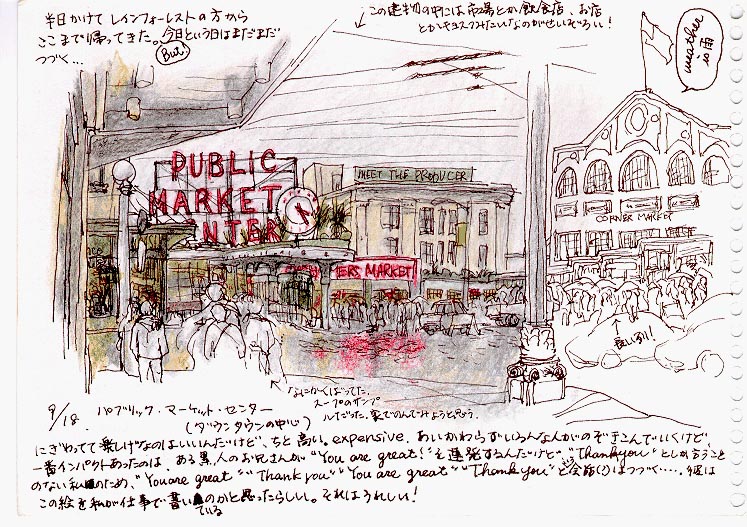 半日かけて レインフォーレストの方から
ここまで帰ってきた。今日という日はまだまだ
つづく…
But!
この建物の中には市場とか飲食店、お店
とかキオスクみたいなのがせいぞろい!
weather
雨
PUBLIC
MARKET
ENTER
MEET THE PRODUCER
ERS MARKET
CORNER MARKET
長い列!
なにかくばってた。
スープのサンプ
ルだった。家でのんでみようと思う。
9/18. パブリック・マーケット・センター
(ダウンタウンの中心)
にぎわってて楽しげなのはいいんだけど、ちと高い。expensive. あいかわらずいろんな人がのぞきこんでいくけど、
一番インパクトあったのは、ある黒人のお兄さんが "You are great!" を連発するんだけど "Thank you" としか言うこと
のない私のため、"You are great" "Thank you" "You are great" "Thank you" と会話(?)はつづく….彼は
この絵を私が仕事で書いているのかと思ったらしい。それはうれしい!